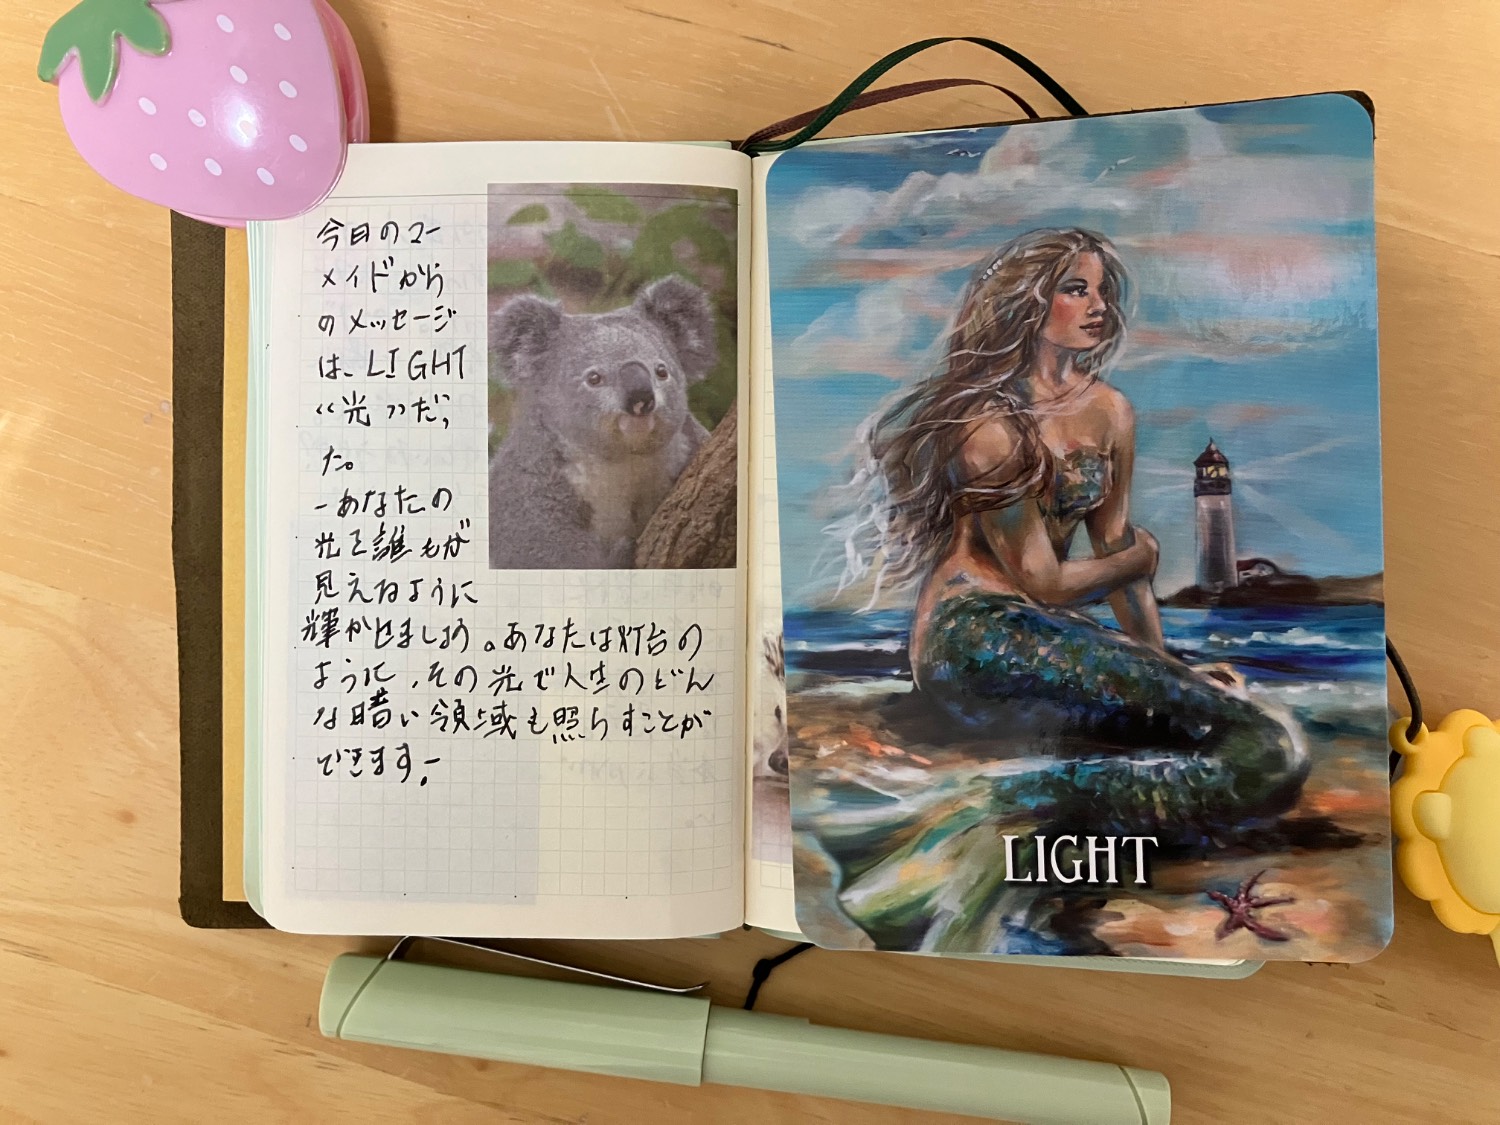 今日のマー
メイドから
のメッセージ
は、LIGHT
“光”だっ
た。
-あなたの
光を誰もが
見えるように
輝かせましょう。あなたは灯台の
ように、その光で人生のどん
な暗い領域も照らすことが
できます。-
LIGHT